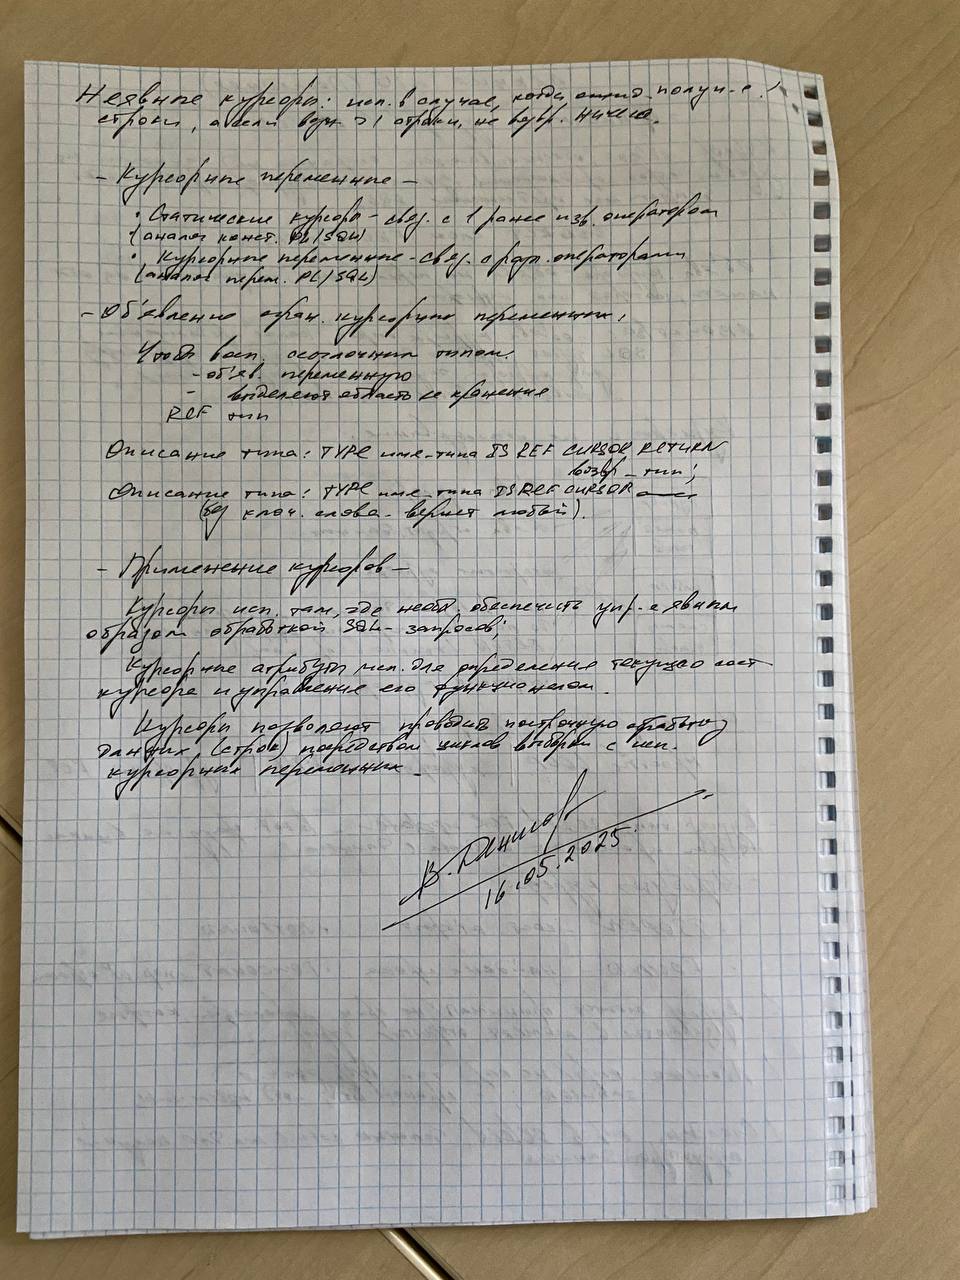 Неявные курсоры: исп. в случае, когда ожид. получ-е 1
строки, а если верн. >1 строки, не возвр. ничего.
- Курсорные переменные -
• Статические курсоры - связ. с 1 ранее изв. оператором
(аналог конст. PL/SQL)
• Курсорные переменные - связ. с разл. операторами
(аналог перем. PL/SQL)
- Объявление огран. курсорных переменных:
Чтобы восп. ссылочным типом:
- объяв. переменную
- выделяют область хранения
REF тип
Описание типа: TYPE имя_типа IS REF CURSOR RETURN
возвр_тип;
Описание типа: TYPE имя_типа IS REF CURSOR
(без ключ. слова - вернет любой).
- Применение курсоров -
Курсоры исп. там, где необх. обеспечить упр-е явным
образом обработкой SQL-запросов;
Курсорные атрибуты исп. для определения текущего сост
курсора и управления его функционалом.
Курсоры позволяют проводить построчную обработку
данных (строк) посредством циклов выборки с исп.
курсорных переменных.
В. Данилов
16.05.2025